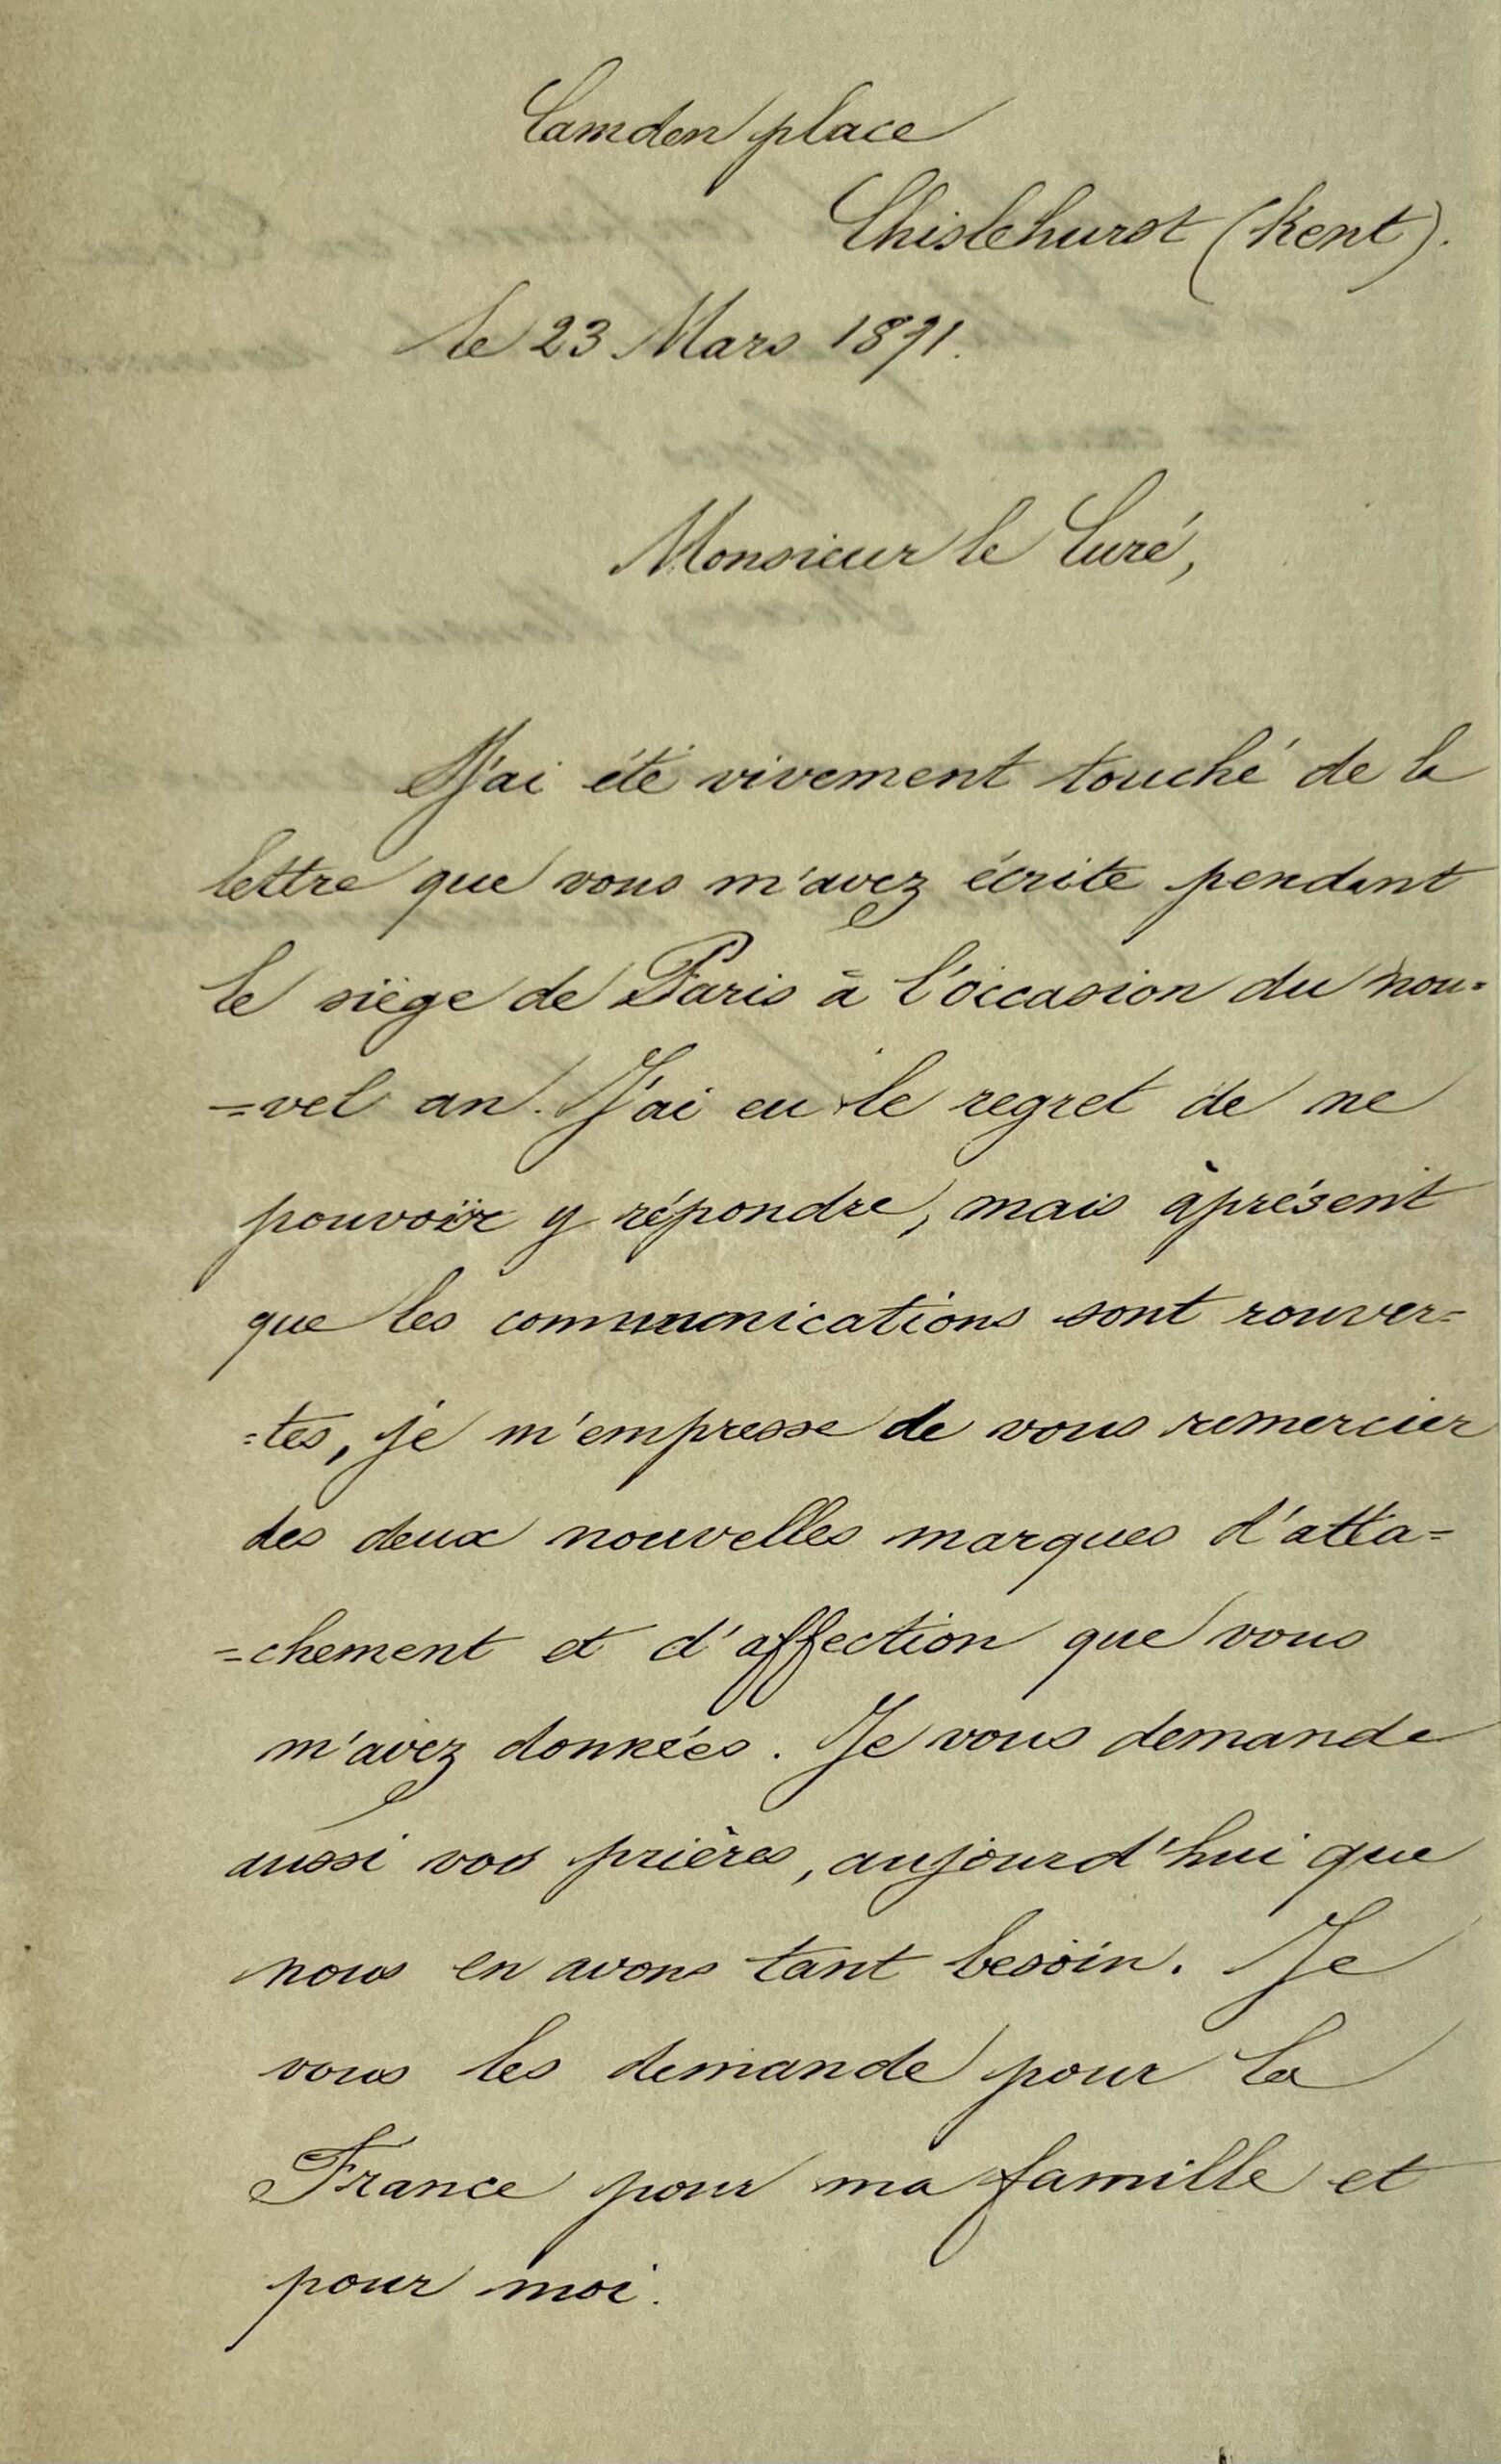 Camden place
Chislehurst (Kent).
le 23 Mars 1871.
Monsieur le Curé,
J'ai été vivement touché de la
lettre que vous m'avez écrite pendant
le siège de Paris à l'occasion du nou=
=vel an. J'ai eu le regret de ne
pouvoir y répondre, mais àprésent
que les communications sont rouver=
=tes, je m'empresse de vous remercier
des deux nouvelles marques d'atta=
=chement et d'affection que vous
m'avez données. Je vous demande
aussi vos prières, aujourd'hui que
nous en avons tant besoin. Je
vous les demande pour la
France pour ma famille et
pour moi.